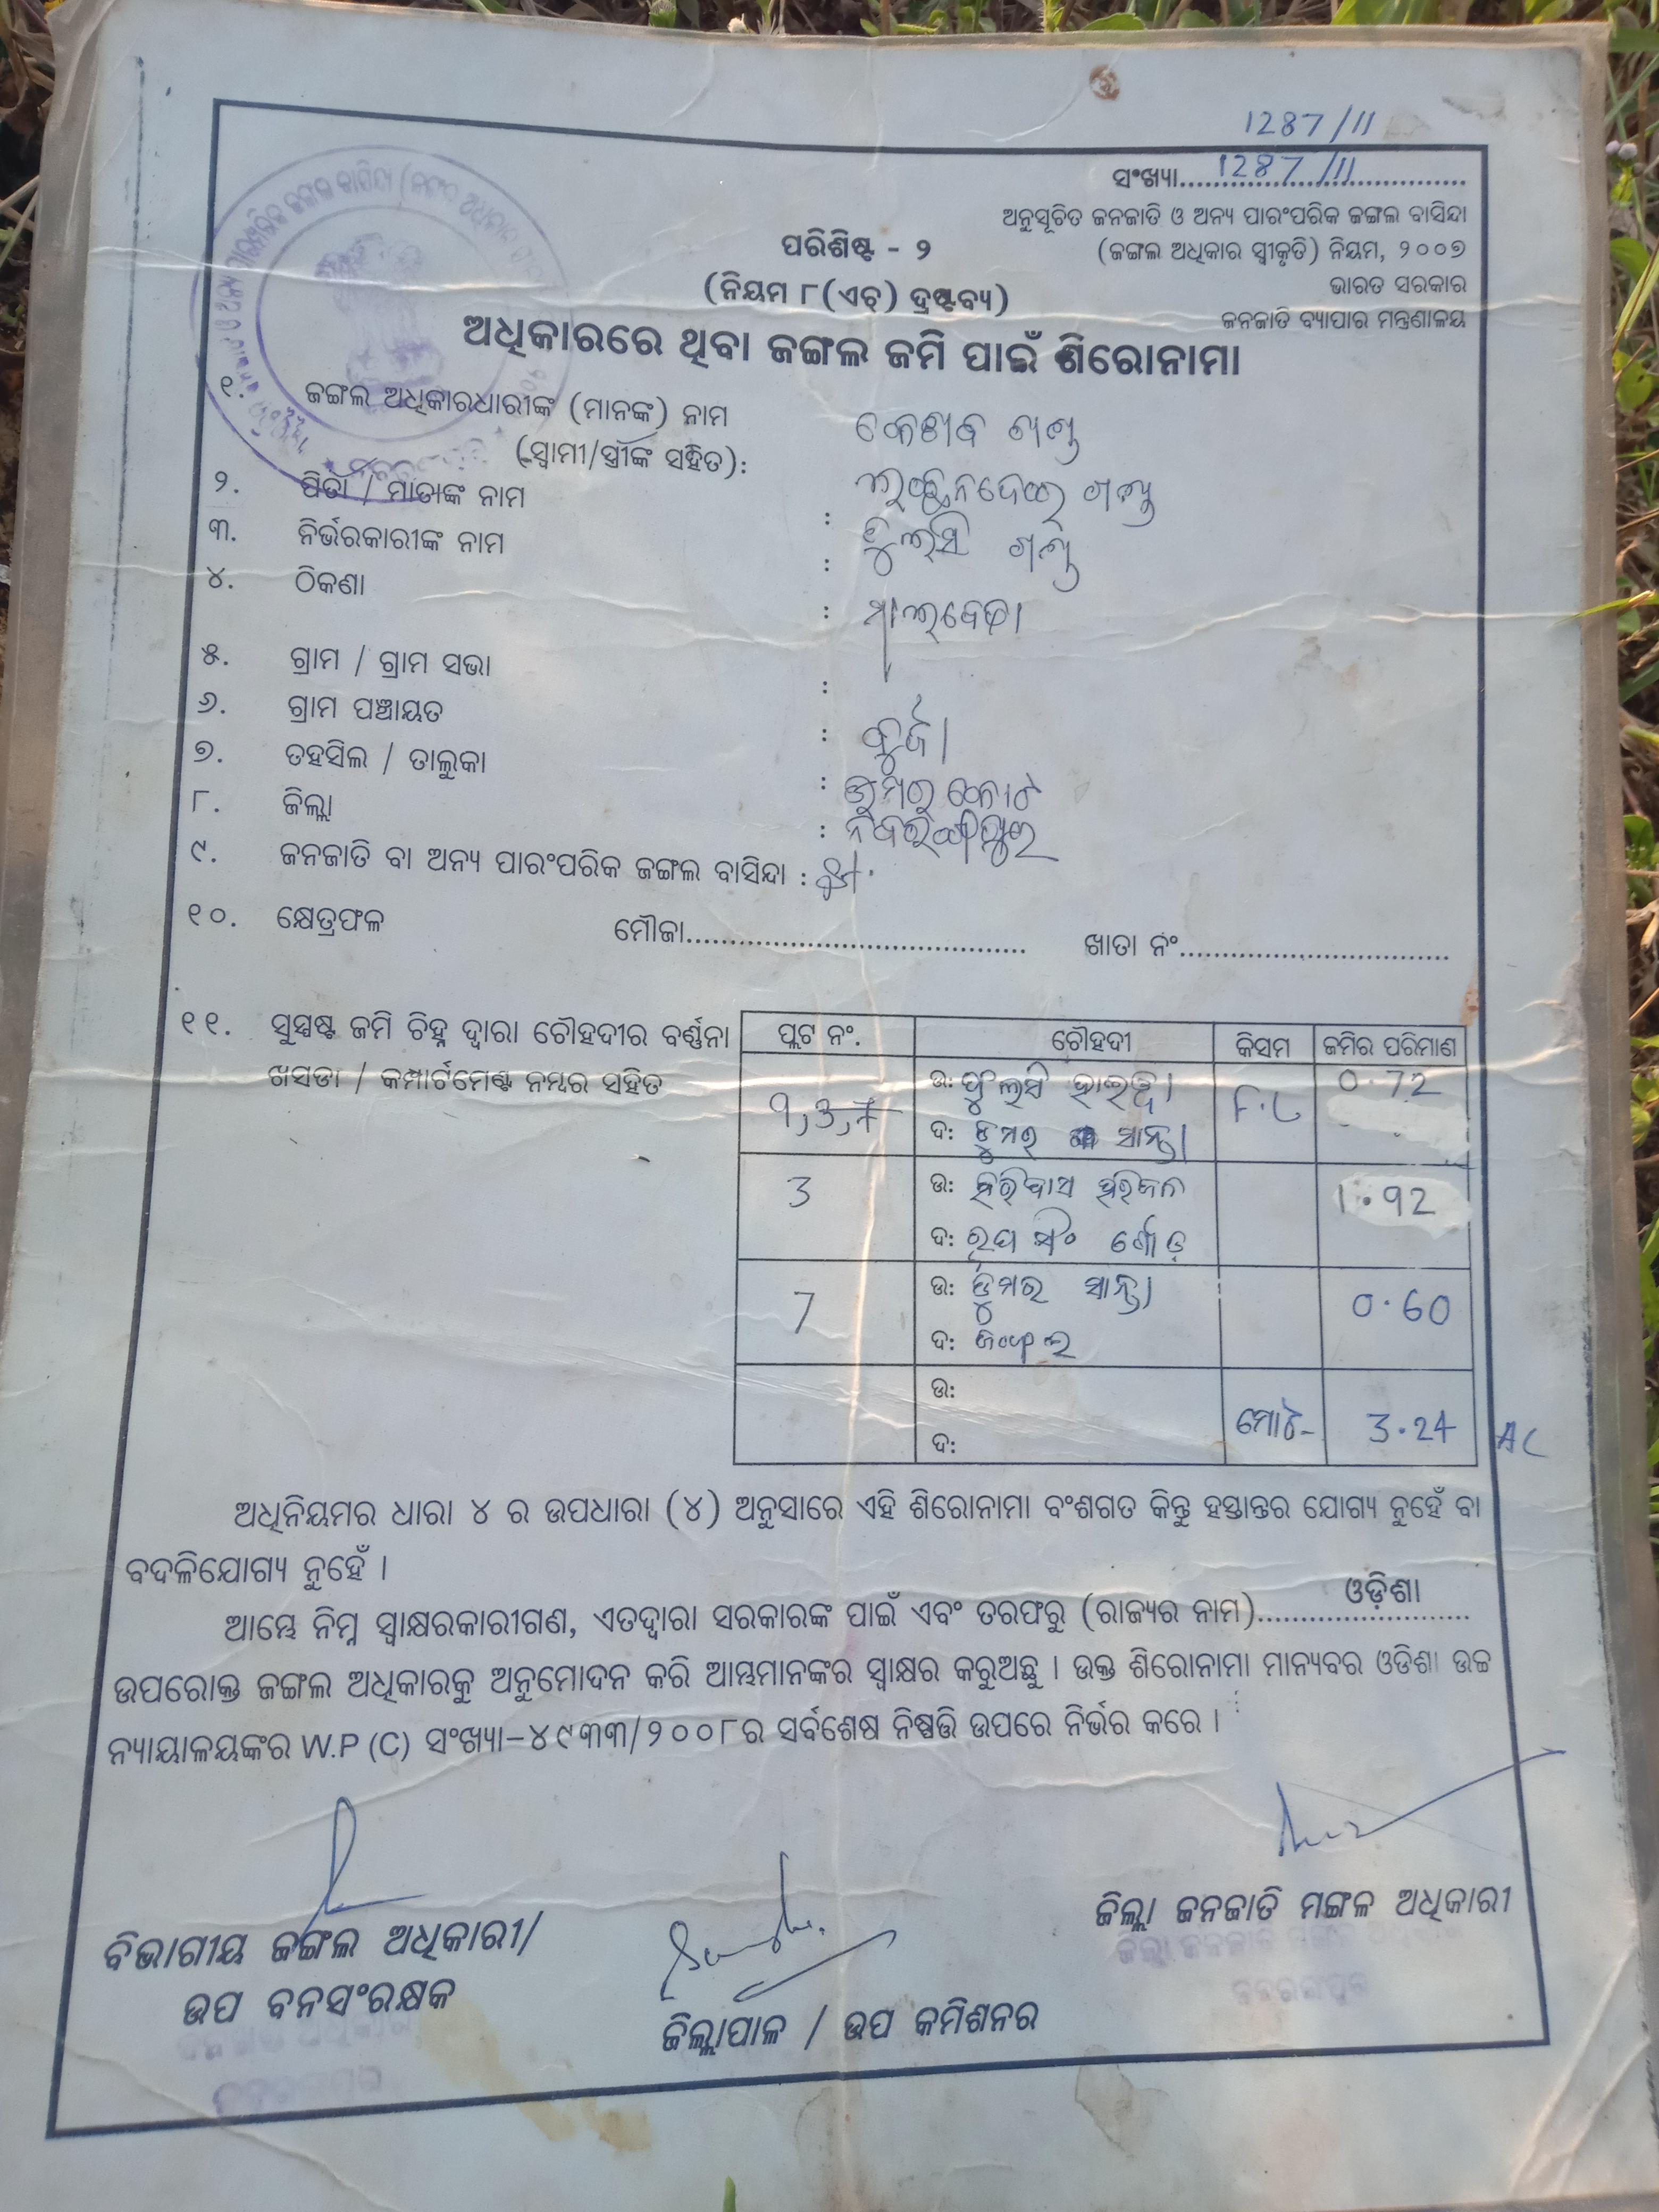 1287/11
ସଂଖ୍ୟା..........1287/11..........
ଅନୁସୂଚିତ ଜନଜାତି ଓ ଅନ୍ୟ ପାରଂପରିକ ଜଙ୍ଗଲ ବାସିନ୍ଦା
(ଜଙ୍ଗଲ ଅଧିକାର ସ୍ୱୀକୃତି) ନିୟମ, ୨୦୦୭
ଭାରତ ସରକାର
ଜନଜାତି ବ୍ୟାପାର ମନ୍ତ୍ରଣାଳୟ
ପରିଶିଷ୍ଟ - ୨
(ନିୟମ ୮(ଏଚ୍) ଦ୍ରଷ୍ଟବ୍ୟ)
ଅଧିକାରରେ ଥିବା ଜଙ୍ଗଲ ଜମି ପାଇଁ ଶିରୋନାମା
୧. ଜଙ୍ଗଲ ଅଧିକାରଧାରୀଙ୍କ (ମାନଙ୍କ) ନାମ
(ସ୍ୱାମୀ/ସ୍ତ୍ରୀଙ୍କ ସହିତ):
୨. ପିତା / ମାତାଙ୍କ ନାମ :
୩. ନିର୍ଭରକାରୀଙ୍କ ନାମ :
୪. ଠିକଣା :
୫. ଗ୍ରାମ / ଗ୍ରାମ ସଭା :
୬. ଗ୍ରାମ ପଞ୍ଚାୟତ :
୭. ତହସିଲ / ତାଲୁକା :
୮. ଜିଲ୍ଲା :
୯. ଜନଜାତି ବା ଅନ୍ୟ ପାରଂପରିକ ଜଙ୍ଗଲ ବାସିନ୍ଦା :
୧୦. କ୍ଷେତ୍ରଫଳ ମୌଜା.................................... ଖାତା ନଂ..............................
୧୧. ସୁସ୍ପଷ୍ଟ ଜମି ଚିହ୍ନ ଦ୍ୱାରା ଚୌହଦୀର ବର୍ଣ୍ଣନା
ଖସଡା / କମ୍ପାର୍ଟମେଣ୍ଟ ନମ୍ବର ସହିତ
ପ୍ଲଟ ନଂ. ଚୌହଦୀ କିସମ ଜମିର ପରିମାଣ
ଉ: 0.72
ଦ: ଡୁମର ସାନ୍ତା
3 ଉ: ହରିଦାସ ହରିଜନ 1.92
ଦ:
7 ଉ: ଡୁମର ସାନ୍ତା 0.60
ଦ: ଜଙ୍ଗଲ
ଉ:
ଦ: ମୋଟ- 3.24 AC
ଅଧିନିୟମର ଧାରା ୪ ର ଉପଧାରା (୪) ଅନୁସାରେ ଏହି ଶିରୋନାମା ବଂଶଗତ କିନ୍ତୁ ହସ୍ତାନ୍ତର ଯୋଗ୍ୟ ନୁହେଁ ବା
ବଦଳିଯୋଗ୍ୟ ନୁହେଁ ।
ଆମ୍ଭେ ନିମ୍ନ ସ୍ୱାକ୍ଷରକାରୀଗଣ, ଏତଦ୍ୱାରା ସରକାରଙ୍କ ପାଇଁ ଏବଂ ତରଫରୁ (ରାଜ୍ୟର ନାମ)..........ଓଡ଼ିଶା..........
ଉପରୋକ୍ତ ଜଙ୍ଗଲ ଅଧିକାରକୁ ଅନୁମୋଦନ କରି ଆମ୍ଭମାନଙ୍କର ସ୍ୱାକ୍ଷର କରୁଅଛୁ । ଉକ୍ତ ଶିରୋନାମା ମାନ୍ୟବର ଓଡିଶା ଉଚ୍ଚ
ନ୍ୟାୟାଳୟଙ୍କର W.P (C) ସଂଖ୍ୟା-୪୯୩୩/୨୦୦୮ର ସର୍ବଶେଷ ନିଷ୍ପତ୍ତି ଉପରେ ନିର୍ଭର କରେ ।
ବିଭାଗୀୟ ଜଙ୍ଗଲ ଅଧିକାରୀ/
ଉପ ବନସଂରକ୍ଷକ
ଜିଲ୍ଲାପାଳ / ଉପ କମିଶନର
ଜିଲ୍ଲା ଜନଜାତି ମଙ୍ଗଳ ଅଧିକାରୀ